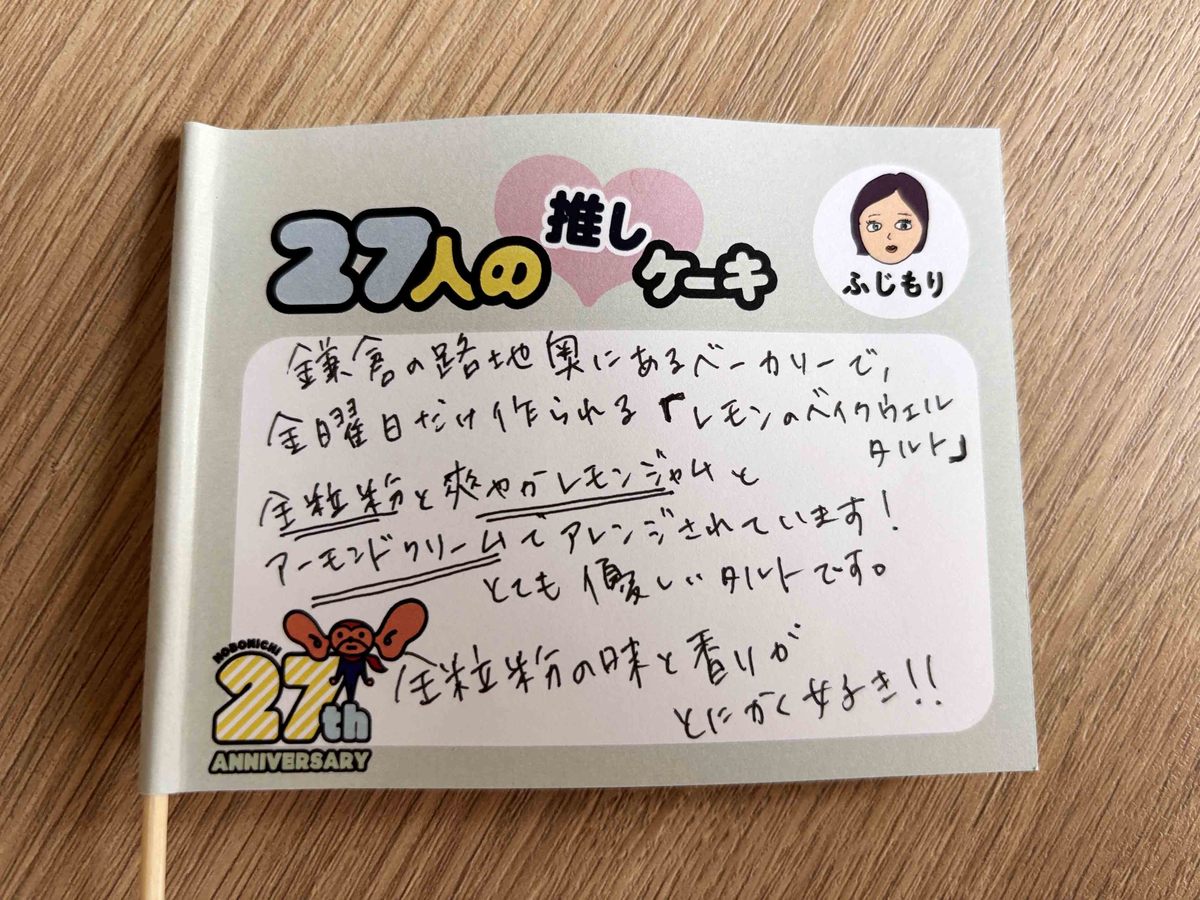 27人の推しケーキ
ふじもり
鎌倉の路地奥にあるベーカリーで、
金曜日だけ作られる「レモンのベイクウェル
タルト」
全粒粉と爽やかレモンジャムと
アーモンドクリームでアレンジされています！
とても優しいタルトです。
全粒粉の味と香りが
とにかく好き!!
HOBONICHI
27th
ANNIVERSARY